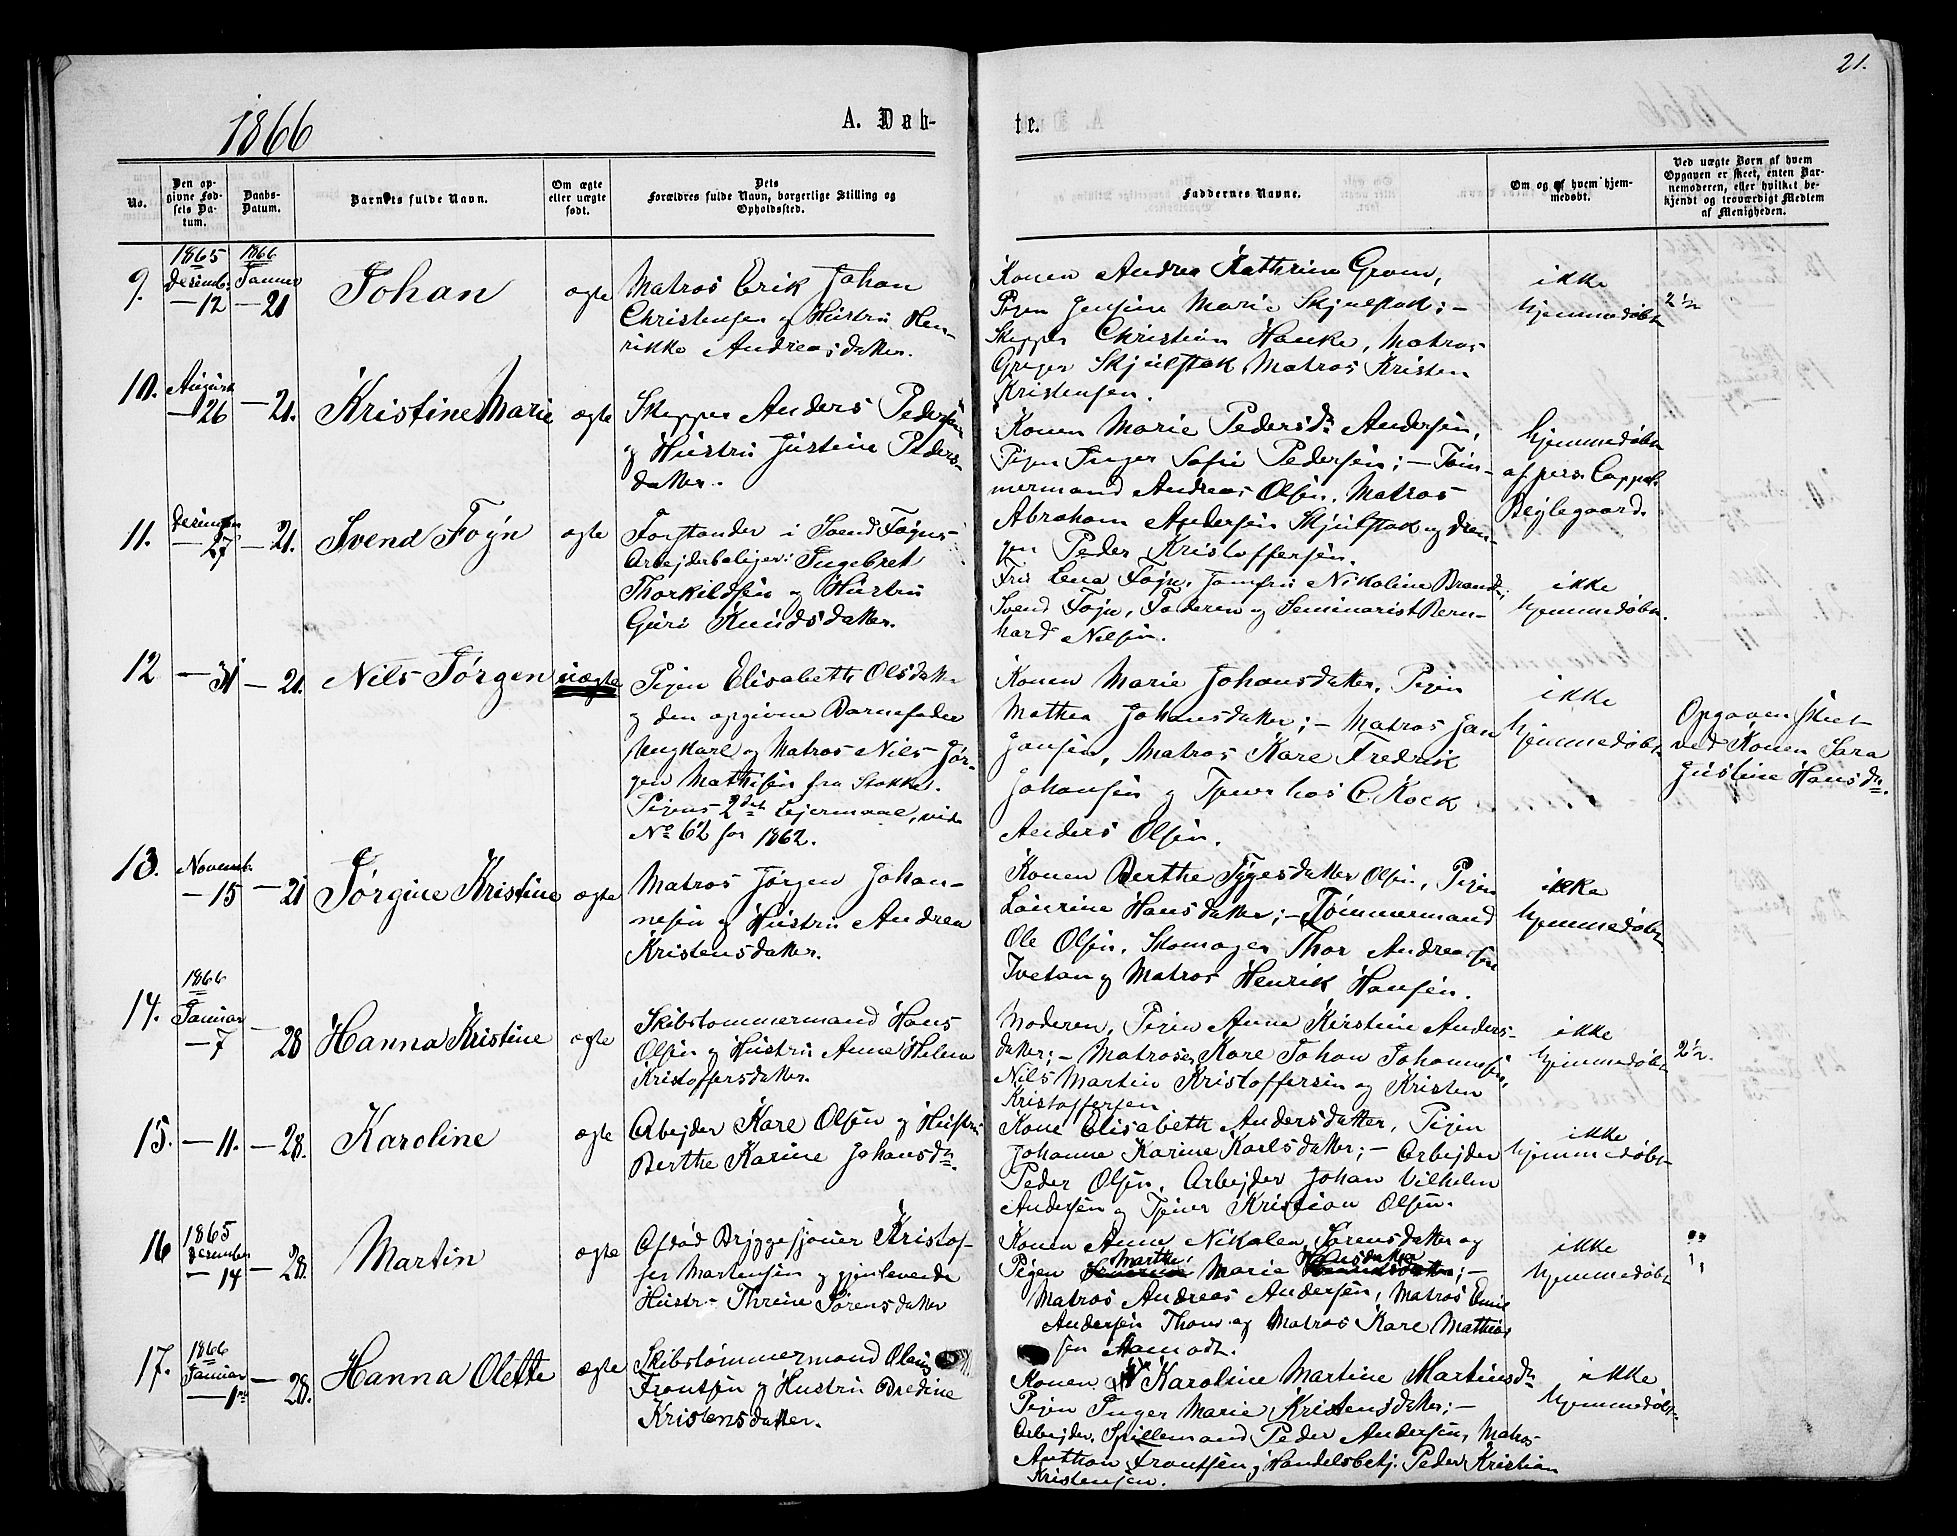 21.
1866
A. Døb-
te.
No.
Den op-
givne Fød-
sels Da-
tum.
Daabs-
Datum.
Barnets fulde Navn.
Om ægte
eller uægte
født.
Dets
Forældres fulde Navn, borgerlige Stilling og
Opholdssted.
Faddernes Navne.
Om og af hvem hjem-
medøbt.
Ved uægte Børn af hvem
Opgaven er skeet, enten Bar-
nemoderen, eller hvilket be-
kjendt og troværdigt Medlem
af Menigheden.
9.
1865
Desemb.
— 12
1866
Januar
— 21
Johan
ægte
Matros Erik Johan
Christensen og Hustru Hen-
rikke Andreasdatter.
Konen Andrea Kathrine Grom,
Pigen Jensine Marie Skjelstak; —
Skipper Christian Hanke, Matros
Greger Skjelstak Matros Kristen
Kristensen.
ikke
hjemmedøbt
2 1/2
10.
August
— 26
— 21.
Kristine Marie
ægte
Skipper Anders Pedersen
og Hustru Justine Peders-
datter.
Konen Marie Pedersdr Andersen,
Pigen Inger Sofie Pedersen; — Töm-
mermand Andreas Olsen, Matros
Abraham Andersen Skjelstak og Dren-
gen Peder Kristoffersen.
hjemmedøbt
af pers. Cappel.
Bejlegaard.
11.
Desember
— 27
— 21.
Svend Foyn
ægte
Forstander i Svend Foyns
Arbejderboliger: Ingebret
Thorkildsen og Hustru
Guri Knudsdatter.
Fru Lena Foyn, Jomfru Nikoline Brandt,
Svend Foyn, Faderen og Seminarist Bern-
hard Nilsen.
ikke
hjemmedøbt.
12
— 31
— 21.
Nils Jørgen
uægte
Pigen Elisabeth Olsdatter
og den opgivne Barnefader
Ungkarl og Matros Nils Jør-
gen Mathisen fra Stokke.
Pigens 2det Lejermaal, vide
No 62 for 1862.
Konen Marie Johansdatter, Pigen
Mathea Johansdatter; — Matros Jan
Jansen, Matros Karl Fredrik
Johansen og Tjener hos C. Kock
Anders Olsen.
ikke
hjemmedøbt
Opgaven skeet
ved Konen Sara
Justine Hansdr.
13.
Novemb.
— 15
— 21
Jørgine Kristine
ægte
Matros Jørgen Johan-
nesen og Hustru Andrea
Kristensdatter.
Konen Berthe Tygesdatter Olsen, Pigen
Laurine Hansdatter; — Tømmermand
Ole Olsen, Skomager Thor Andreassen
Tvetan og Matros Henrik Hansen.
ikke
hjemmedøbt
14.
1866
Januar
— 7
— 28
Hanna Kristine
ægte
Skibstømmermand Hans
Olsen og Hustru Anne Helene
Kristoffersdatter.
Moderen, Pigen Anne Kirstine Anders-
datter; — Matroser Karl Johan Johannesen,
Nils Martin Kristoffersen og Kristen
Kristoffersen
ikke
hjemmedøbt
2 1/2.
15.
— 11.
— 28.
Karoline
ægte
Arbejder Karl Olsen og Hustru
Berthe Karine Johansdr.
Kone Elisabeth Andersdatter, Pigen
Johanne Karine Karlsdatter; — Arbejder
Peder Olsen, Arbejder Johan Vilhelm
Andersen og Tjener Kristian Olsen.
ikke
hjemmedøbt
16
1865
Desember
— 14
— 28.
Martin
ægte
Afdød Bryggesjouer Kristof-
fer Martensen og gjenlevende
Hustru Thrine Sørensdatter
Konen Anne Nikolea Sørensdatter og
Pigen Marthe Marie Hansdatter; —
Matros Andreas Andersen, Matros Emil
Andersen Thou og Matros Karl Mathias
sen Aamodt.
ikke
hjemmedøbt
17.
1866
Januar
— 1ste
— 28.
Hanna Olette
ægte
Skibstømmermand Olaus
Frantsen og Hustru Bredine
Kristensdatter.
Konen Karoline Martine Martinsdr
Pigen Inger Marie Kristensdatter; —
Arbejder, Spillemand Peder Andersen, Matros
Anthon Frantsen og Handelsbetj. Peder Kristian
Kristensen.
ikke
hjemmedøbt